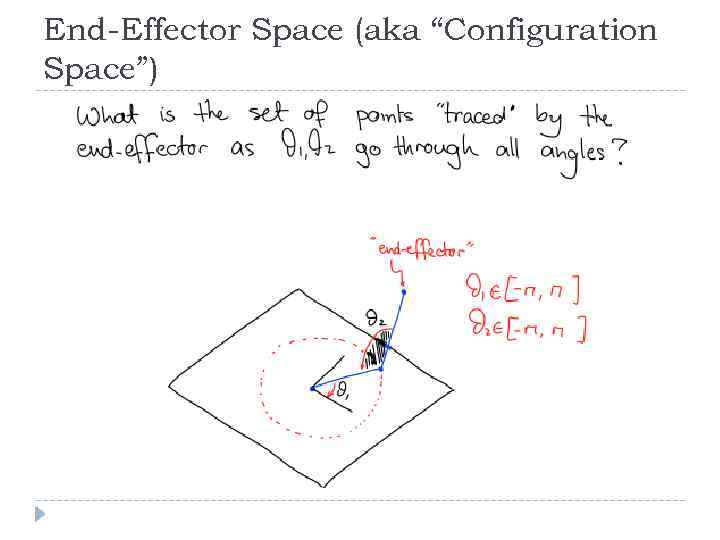 End-Effector Space (aka “Configuration
Space”)
What is the set of points "traced" by the
end-effector as θ1, θ2 go through all angles?
"end-effector"
θ1 ∈ [-π, π]
θ2 ∈ [-π, π]
θ2
θ1